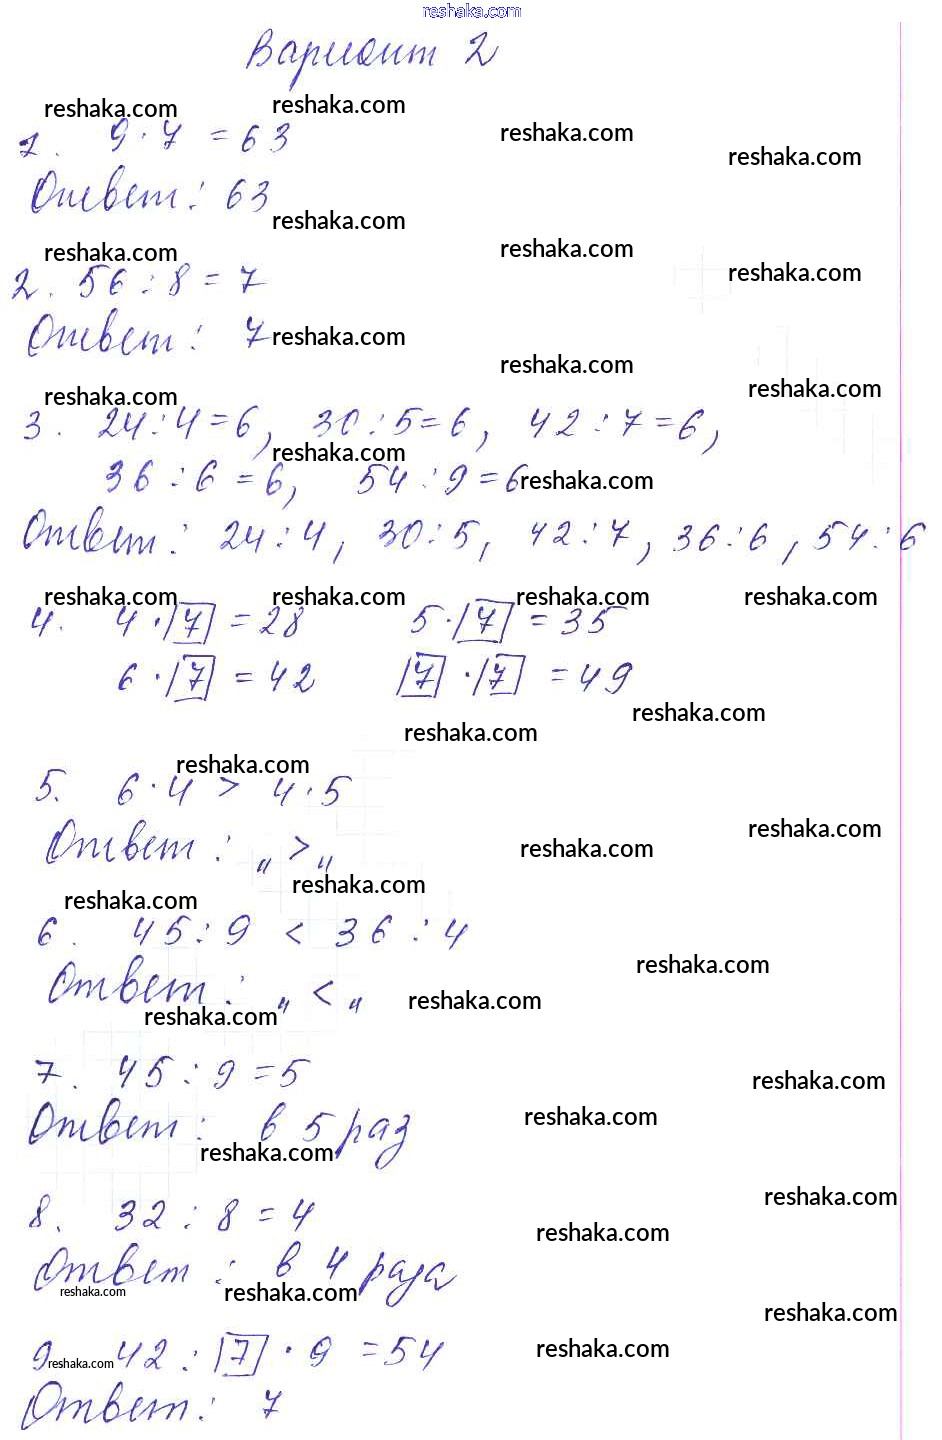 reshaka.com
Вариант 2
reshaka.com reshaka.com reshaka.com reshaka.com
1. 9·7 = 63
Ответ: 63
reshaka.com reshaka.com reshaka.com reshaka.com
2. 56:8 = 7
Ответ: 7
reshaka.com reshaka.com reshaka.com reshaka.com
3. 24:4=6, 30:5=6, 42:7=6,
reshaka.com reshaka.com
36:6=6, 54:9=6
Ответ: 24:4, 30:5, 42:7, 36:6, 54:6
reshaka.com reshaka.com reshaka.com reshaka.com
4. 4·7=28 5·7=35
6·7=42 7·7=49
reshaka.com reshaka.com reshaka.com
5. 6·4 > 4·5
Ответ: „>„
reshaka.com reshaka.com reshaka.com reshaka.com
6. 45:9 < 36:4
Ответ: „<„
reshaka.com reshaka.com reshaka.com
7. 45:9=5
Ответ: в 5 раз
reshaka.com reshaka.com reshaka.com
8. 32:8=4
Ответ: в 4 раза
reshaka.com reshaka.com reshaka.com reshaka.com
9 42:7·9=54
reshaka.com reshaka.com reshaka.com
Ответ: 7